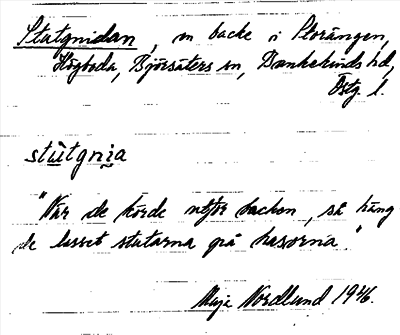 Stutgnidan, en backe i Storängen,
Högboda, Björsäters sn, Bankekinds hd,
Östg. l.
stùtgnia
"När de körde utför backen, så häng
de lisset stutarna på hasorna."
Maja Nordlund 1946.